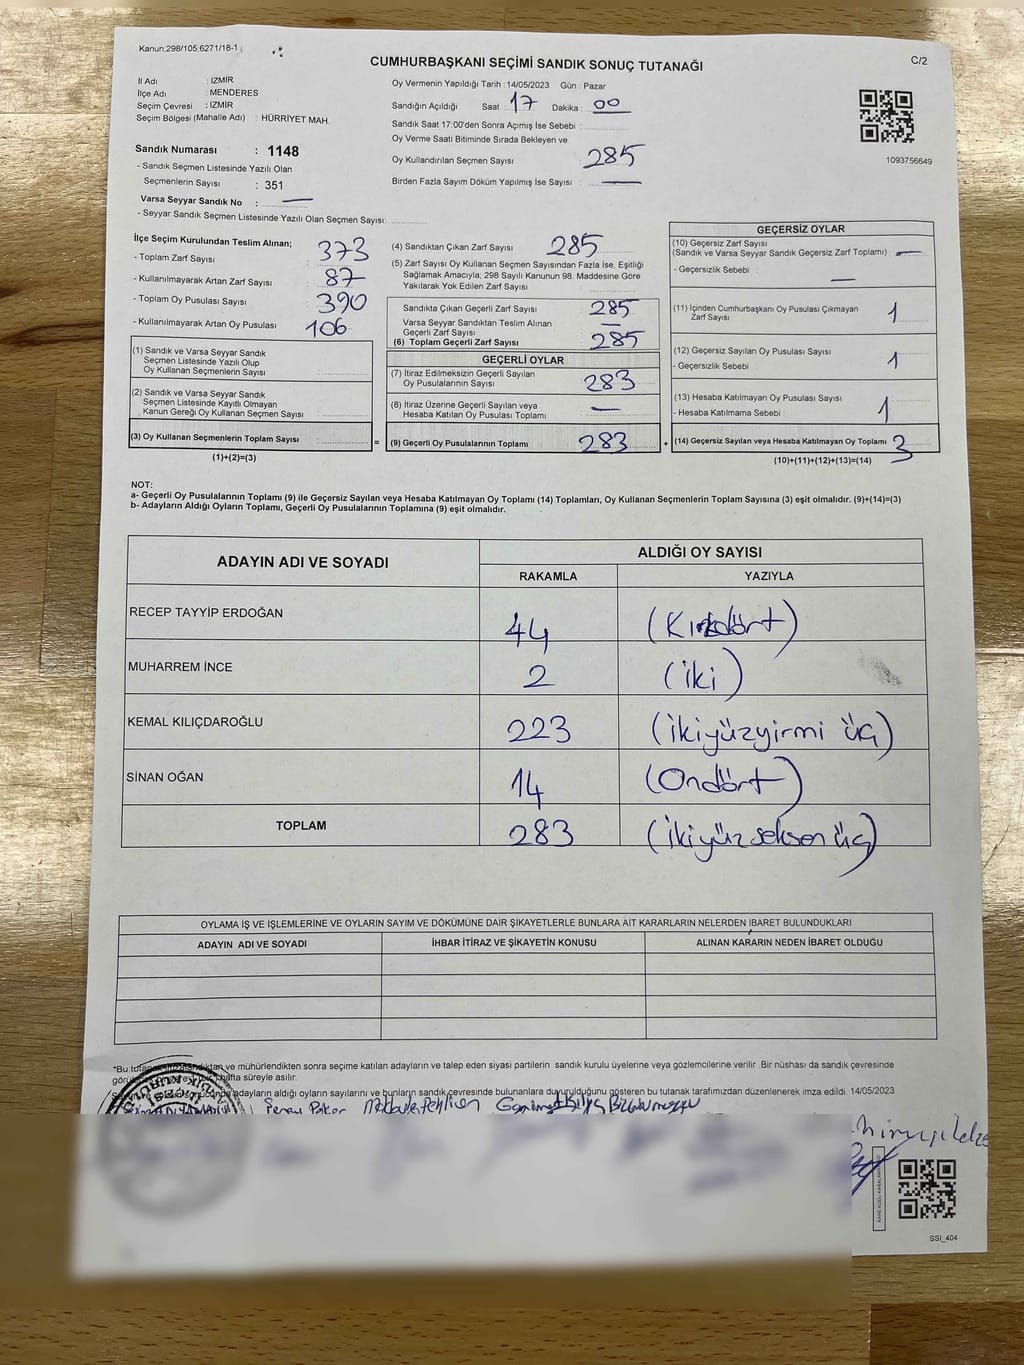 Kanun:298/105;6271/18-1
CUMHURBAŞKANI SEÇİMİ SANDIK SONUÇ TUTANAĞI
C/2
İl Adı : İZMİR
İlçe Adı : MENDERES
Seçim Çevresi : İZMİR
Seçim Bölgesi (Mahalle Adı) : HÜRRİYET MAH.
Sandık Numarası : 1148
- Sandık Seçmen Listesinde Yazılı Olan
Seçmenlerin Sayısı : 351
Varsa Seyyar Sandık No : —
- Seyyar Sandık Seçmen Listesinde Yazılı Olan Seçmen Sayısı:
Oy Vermenin Yapıldığı Tarih :14/05/2023 Gün : Pazar
Sandığın Açıldığı Saat : 17 Dakika : 00
Sandık Saat 17:00'den Sonra Açımış İse Sebebi :
Oy Verme Saati Bitiminde Sırada Bekleyen ve
Oy Kullandırılan Seçmen Sayısı 285
Birden Fazla Sayım Döküm Yapılmış İse Sayısı : —
1093756649
İlçe Seçim Kurulundan Teslim Alınan;
- Toplam Zarf Sayısı : 373
- Kullanılmayarak Artan Zarf Sayısı : 87
- Toplam Oy Pusulası Sayısı : 390
- Kullanılmayarak Artan Oy Pusulası : 106
(1) Sandık ve Varsa Seyyar Sandık
Seçmen Listesinde Yazılı Olup
Oy Kullanan Seçmenlerin Sayısı :
(2) Sandık ve Varsa Seyyar Sandık
Seçmen Listesinde Kayıtlı Olmayan
Kanun Gereği Oy Kullanan Seçmen Sayısı :
(3) Oy Kullanan Seçmenlerin Toplam Sayısı :
(1)+(2)=(3)
=
(4) Sandıktan Çıkan Zarf Sayısı 285
(5) Zarf Sayısı Oy Kullanan Seçmen Sayısından Fazla İse, Eşitliği
Sağlamak Amacıyla; 298 Sayılı Kanunun 98. Maddesine Göre
Yakılarak Yok Edilen Zarf Sayısı
Sandıkta Çıkan Geçerli Zarf Sayısı 285
Varsa Seyyar Sandıktan Teslim Alınan
Geçerli Zarf Sayısı —
(6) Toplam Geçerli Zarf Sayısı 285
GEÇERLİ OYLAR
(7) İtiraz Edilmeksizin Geçerli Sayılan
Oy Pusulalarının Sayısı 283
(8) İtiraz Üzerine Geçerli Sayılan veya
Hesaba Katılan Oy Pusulası Toplamı —
(9) Geçerli Oy Pusulalarının Toplamı 283
+
GEÇERSİZ OYLAR
(10) Geçersiz Zarf Sayısı
(Sandık ve Varsa Seyyar Sandık Geçersiz Zarf Toplamı) : —
- Geçersizlik Sebebi : —
(11) İçinden Cumhurbaşkanı Oy Pusulası Çıkmayan
Zarf Sayısı 1
(12) Geçersiz Sayılan Oy Pusulası Sayısı 1
- Geçersizlik Sebebi :
(13) Hesaba Katılmayan Oy Pusulası Sayısı 1
- Hesaba Katılmama Sebebi :
(14) Geçersiz Sayılan veya Hesaba Katılmayan Oy Toplamı 3
(10)+(11)+(12)+(13)=(14)
NOT:
a- Geçerli Oy Pusulalarının Toplamı (9) ile Geçersiz Sayılan veya Hesaba Katılmayan Oy Toplamı (14) Toplamları, Oy Kullanan Seçmenlerin Toplam Sayısına (3) eşit olmalıdır. (9)+(14)=(3)
b- Adayların Aldığı Oyların Toplamı, Geçerli Oy Pusulalarının Toplamına (9) eşit olmalıdır.
ADAYIN ADI VE SOYADI ALDIĞI OY SAYISI
RAKAMLA YAZIYLA
RECEP TAYYİP ERDOĞAN 44 (Kırkdört)
MUHARREM İNCE 2 (iki)
KEMAL KILIÇDAROĞLU 223 (ikiyüzyirmi üç)
SİNAN OĞAN 14 (Ondört)
TOPLAM 283 (ikiyüz seksen üç)
OYLAMA İŞ VE İŞLEMLERİNE VE OYLARIN SAYIM VE DÖKÜMÜNE DAİR ŞİKAYETLERLE BUNLARA AİT KARARLARIN NELERDEN İBARET BULUNDUKLARI
ADAYIN ADI VE SOYADI İHBAR İTİRAZ VE ŞİKAYETİN KONUSU ALINAN KARARIN NEDEN İBARET OLDUĞU
*Bu ve mühürlendikten sonra seçime katılan adayların ve talep eden siyasi partilerin sandık kurulu üyelerine veya gözlemcilerine verilir. Bir nüshası da sandık çevresinde
hafta süreyle asılır.
adayların aldığı oyların sayılarını ve bunların sandık çevresinde bulunanlara duyurulduğunu gösteren bu tutanak tarafımızdan düzenlenerek imza edildi. 14/05/2023
SSI_404